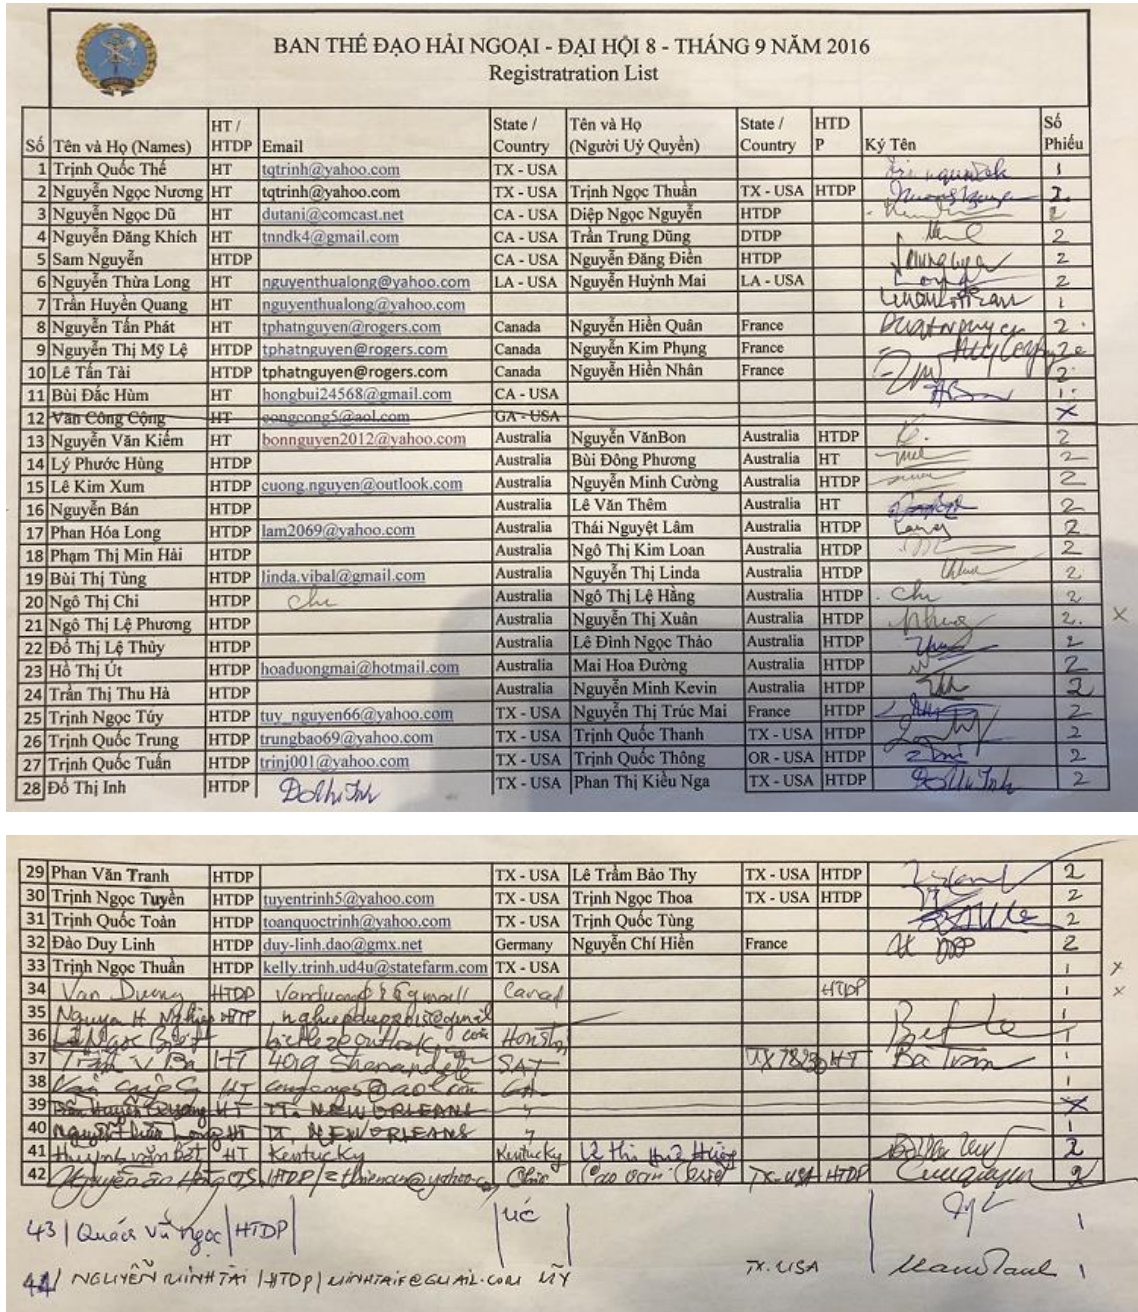 BAN THẾ ĐẠO HẢI NGOẠI - ĐẠI HỘI 8 - THÁNG 9 NĂM 2016
Registratration List
Số Tên và Họ (Names) HT / HTDP Email State / Country Tên và Họ (Người Uỷ Quyền) State / Country HTD P Ký Tên Số Phiếu
1 Trịnh Quốc Thế HT tqtrinh@yahoo.com TX - USA 1
2 Nguyễn Ngọc Nương HT tqtrinh@yahoo.com TX - USA Trịnh Ngọc Thuần TX - USA HTDP 2
3 Nguyễn Ngọc Dũ HT dutani@comcast.net CA - USA Diệp Ngọc Nguyễn HTDP 2
4 Nguyễn Đăng Khích HT tnndk4@gmail.com CA - USA Trần Trung Dũng DTDP 2
5 Sam Nguyễn HTDP CA - USA Nguyễn Đăng Điền HTDP 2
6 Nguyễn Thừa Long HT nguyenthualong@yahoo.com LA - USA Nguyễn Huỳnh Mai LA - USA Long 2
7 Trần Huyền Quang HT nguyenthualong@yahoo.com 1
8 Nguyễn Tấn Phát HT tphatnguyen@rogers.com Canada Nguyễn Hiền Quân France 2
9 Nguyễn Thị Mỹ Lệ HTDP tphatnguyen@rogers.com Canada Nguyễn Kim Phụng France 2
10 Lê Tấn Tài HTDP tphatnguyen@rogers.com Canada Nguyễn Hiền Nhân France 2
11 Bùi Đắc Hùm HT hongbui24568@gmail.com CA - USA 1
12 Văn Công Cộng HT congcong5@aol.com GA - USA X
13 Nguyễn Văn Kiếm HT bonnguyen2012@yahoo.com Australia Nguyễn VănBon Australia HTDP 2
14 Lý Phước Hùng HTDP Australia Bùi Đông Phương Australia HT 2
15 Lê Kim Xum HTDP cuong.nguyen@outlook.com Australia Nguyễn Minh Cường Australia HTDP 2
16 Nguyễn Bán HTDP Australia Lê Văn Thêm Australia HT 2
17 Phan Hóa Long HTDP lam2069@yahoo.com Australia Thái Nguyệt Lâm Australia HTDP Long 2
18 Phạm Thị Min Hải HTDP Australia Ngô Thị Kim Loan Australia HTDP 2
19 Bùi Thị Tùng HTDP linda.vibal@gmail.com Australia Nguyễn Thị Linda Australia HTDP 2
20 Ngô Thị Chi HTDP Chi Australia Ngô Thị Lệ Hằng Australia HTDP Chi 2
21 Ngô Thị Lệ Phương HTDP Australia Nguyễn Thị Xuân Australia HTDP 2. X
22 Đỗ Thị Lệ Thủy HTDP Australia Lê Đình Ngọc Thảo Australia HTDP 2
23 Hồ Thị Út HTDP hoaduongmai@hotmail.com Australia Mai Hoa Đường Australia HTDP 2
24 Trần Thị Thu Hà HTDP Australia Nguyễn Minh Kevin Australia HTDP 2
25 Trịnh Ngọc Túy HTDP tuy_nguyen66@yahoo.com TX - USA Nguyễn Thị Trúc Mai France HTDP 2
26 Trịnh Quốc Trung HTDP trungbao69@yahoo.com TX - USA Trịnh Quốc Thanh TX - USA HTDP 2
27 Trịnh Quốc Tuấn HTDP trinj001@yahoo.com TX - USA Trịnh Quốc Thông OR - USA HTDP 2
28 Đỗ Thị Inh HTDP Đỗ Thị Inh TX - USA Phan Thị Kiều Nga TX - USA HTDP Đỗ Thị Inh 2
29 Phan Văn Tranh HTDP TX - USA Lê Trầm Bảo Thy TX - USA HTDP 2
30 Trịnh Ngọc Tuyền HTDP tuyentrinh5@yahoo.com TX - USA Trịnh Ngọc Thoa TX - USA HTDP 2
31 Trịnh Quốc Toàn HTDP toanquoctrinh@yahoo.com TX - USA Trịnh Quốc Tùng 2
32 Đào Duy Linh HTDP duy-linh.dao@gmx.net Germany Nguyễn Chí Hiền France 2
33 Trịnh Ngọc Thuần HTDP kelly.trinh.ud4u@statefarm.com TX - USA 1 X
34 Van Duong HTDP HTDP 1 X
35 Nguyen H. Nghiep HTDP 1
36 Lê Ngọc Biết 1
37 Trần V Ba HT 4019 SAT HT Ba Tran 1
38 HT congcong5@aol.com GA 1
39 Trần Huyền Quang HT TT. NEW ORLEANS " X
40 Nguyễn Thừa Long HT TT. NEW ORLEANS "
41 Huỳnh văn Bớt HT Kentucky Kentucky 2
42 HTDP TX-USA HTDP 2
43 Quách Vũ Ngọc HTDP ÚC 1
44 NGUYỄN MINH TÀI HTDP MỸ TX.USA 1